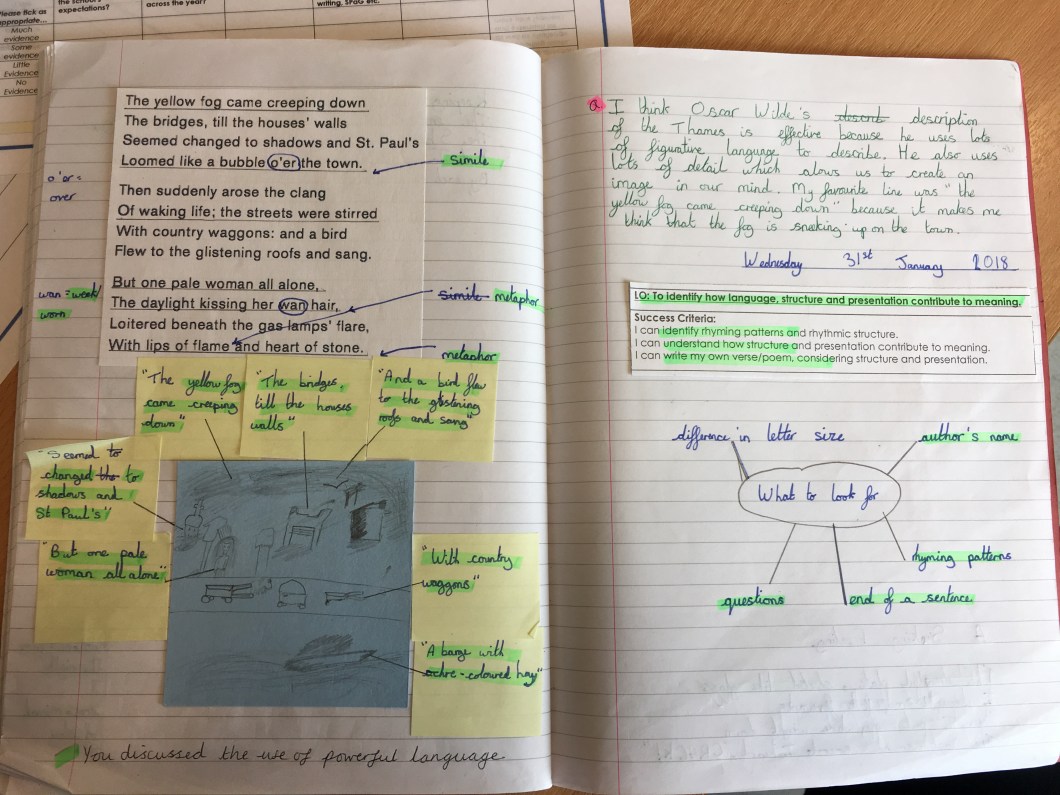 Please tick as
appropriate...
expectations?
across the year?
writing, SPaG etc.
Much
evidence
Some
evidence
Little
Evidence
No
Evidence
The yellow fog came creeping down
The bridges, till the houses' walls
Seemed changed to shadows and St. Paul's
Loomed like a bubble o'er the town.
simile
o'er =
over
Then suddenly arose the clang
Of waking life; the streets were stirred
With country waggons: and a bird
Flew to the glistening roofs and sang.
But one pale woman all alone,
The daylight kissing her wan hair,
Loitered beneath the gas lamps' flare,
With lips of flame and heart of stone.
wan = weak/
worn
simile metaphor
metaphor
"The yellow fog
came creeping
down"
"The bridges,
till the houses
walls"
"And a bird flew
to the glistening
roofs and sang"
"Seemed to
changed the to
shadows and
St Paul's"
"But one pale
woman all alone"
"With country
waggons"
"A barge with
ochre-coloured hay"
You discussed the use of powerful language.
I think Oscar Wilde's describ description
of the Thames is effective because he uses lots
of figurative language to describe. He also uses
lots of detail which alows us to create an
image in our mind. My favourite line was "the
yellow fog came creeping down" because it makes me
think that the fog is sneeking up on the town.
Wednesday 31st January 2018
LO: To identify how language, structure and presentation contribute to meaning.
Success Criteria:
I can identify rhyming patterns and rhythmic structure.
I can understand how structure and presentation contribute to meaning.
I can write my own verse/poem, considering structure and presentation.
difference in letter size
author's name
What to look for
rhyming patterns
questions
end of a sentence